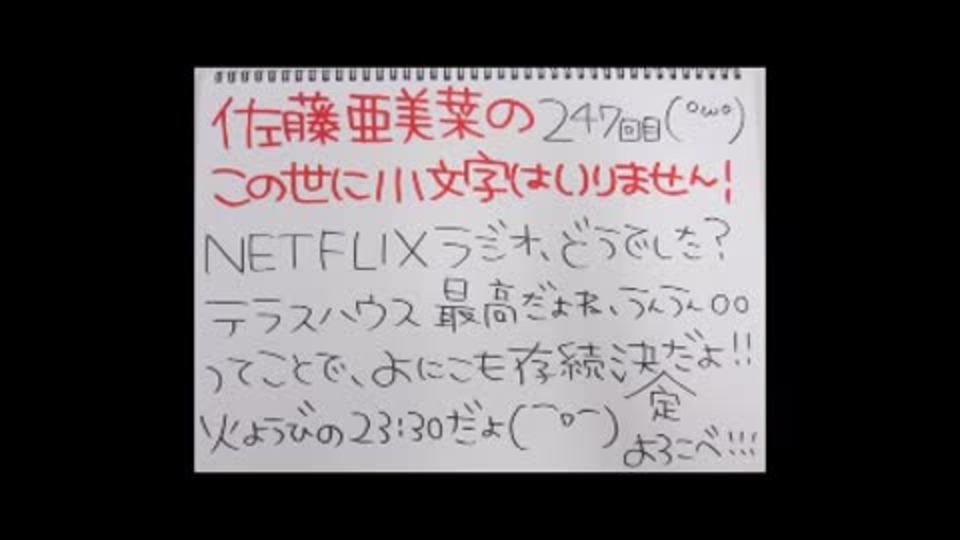 佐藤亜美菜の 247回目(°ω°)
この世に小文字はいりません!
NETFLIXラジオ、どうでした?
テラスハウス 最高だよね、うんうん○○
ってことで、よにこも存続決定だよ!!
火ようびの23:30だよ(￣o￣)
よろこべ!!!